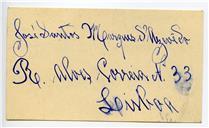 José Santos Marques d'Azevedo
R. Alves Correia Nº 33
Lisboa